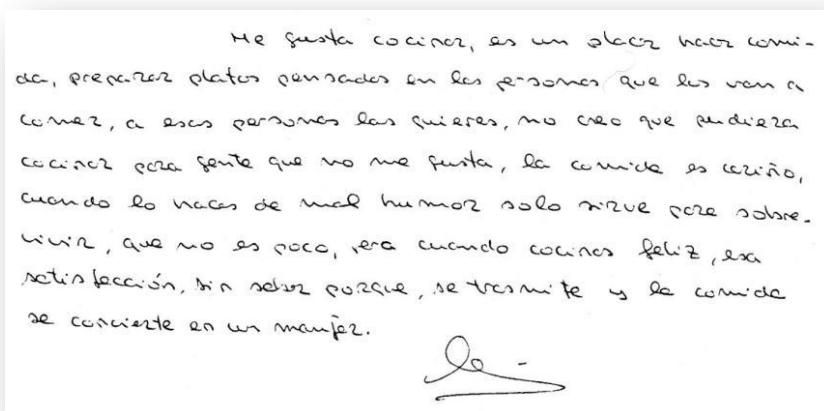 Me gusta cocinar, es un placer hacer comi-
da, preparar platos pensados en las personas que los van a
comer, a esas personas las quieres, no creo que pudiera
cocinar para gente que no me gusta, la comida es cariño,
cuando lo haces de mal humor solo sirve para sobre-
vivir, que no es poco, pero cuando cocinas feliz, esa
satisfacción, sin saber porque, se trasmite y la comida
se convierte en un manjar.